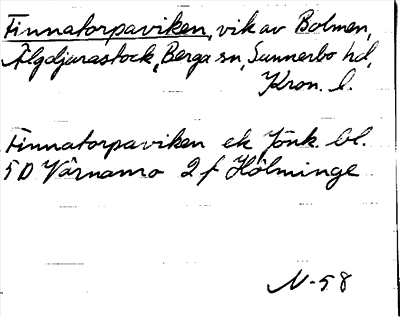 Finnatorpaviken, vik av Bolmen,
Älgdjurastock, Berga sn, Sunnerbo hd,
Kron. l.
Finnatorpaviken ek Jönk. bl.
5D Värnamo 2f Hölminge
N-58